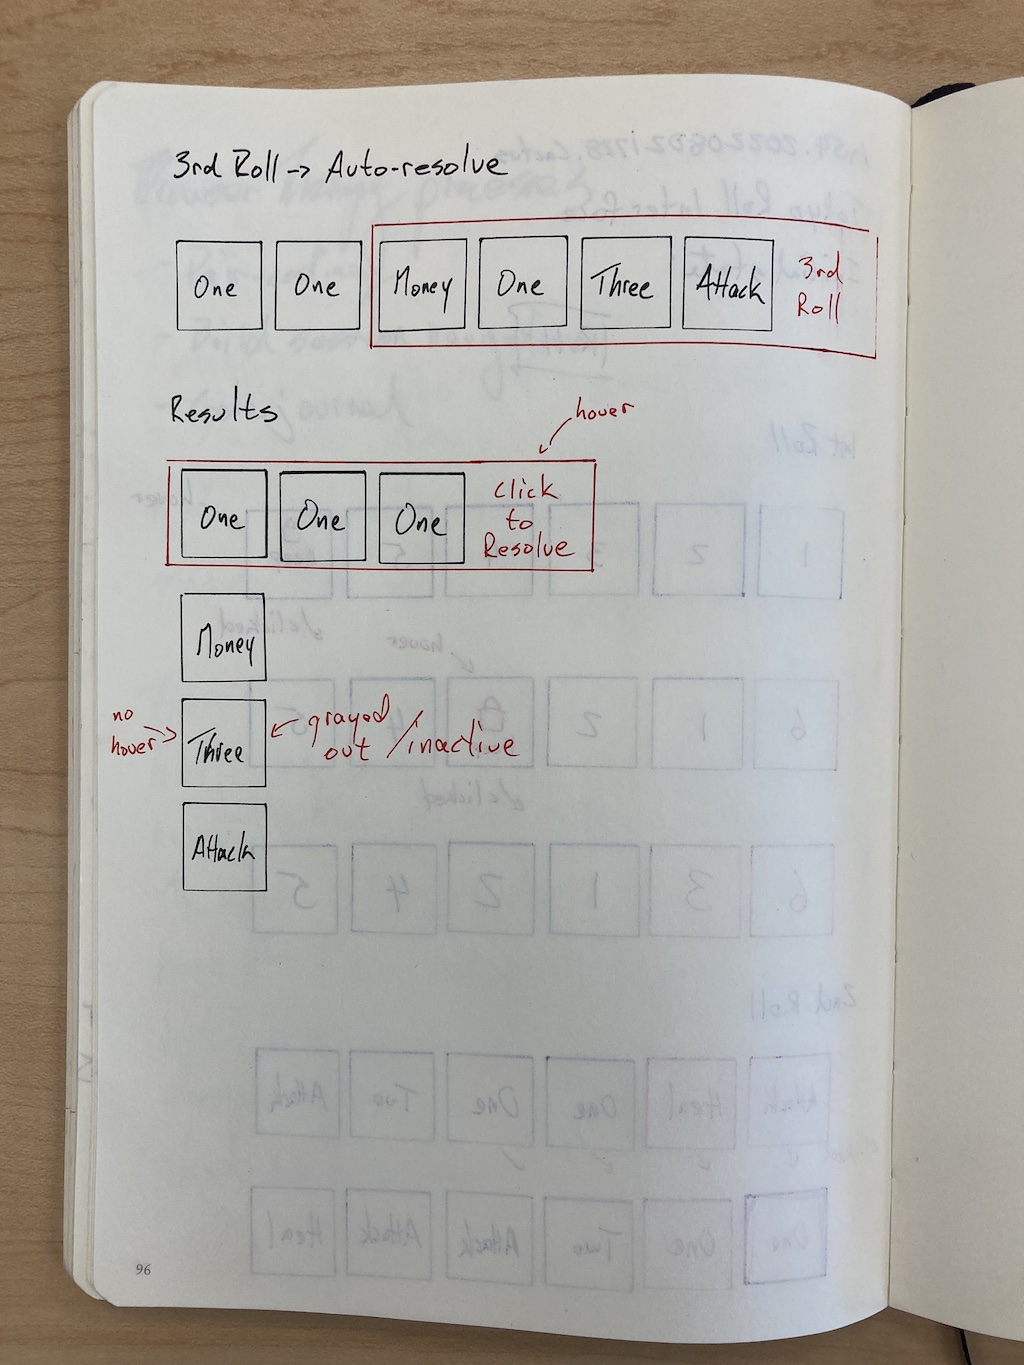 3rd Roll -> Auto-resolve
One One Money One Three Attack 3rd Roll
Results
hover
One One One Click to Resolve
Money
no hover Three grayed out /inactive
Attack
96